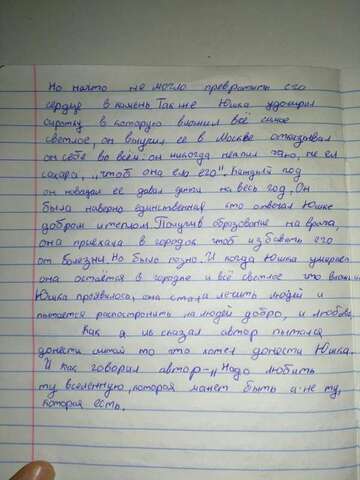 Но ничто не могло превратить его
сердце в камень. Также Юшка удочерил
сиротку в которую вложил всё самое
светлое, он выучил её в Москве отказывал
он себе во всём: он никогда не пил чаю, не ел
сахара, „чтоб она ела его". Каждый год
он навещал её давал деньги на весь год. Он
была наверно единственная кто отвечал Юшке
добрам и теплом. Получив образование на врача,
она приехала в городок чтоб избавить его
от болезни. Но было поздно. И когда Юшка умирает
она остаётся в городке и всё светлое что влажил
Юшка проявилось, она стала лечить людей и
пытается распостронить на людей добро, и любовь.
Как я и сказал автор пытался
донести читай то что хотел донести Юшка.
И как говорил автор-„Надо любить
ту вселенную, которая может быть а не ту,
которая есть.